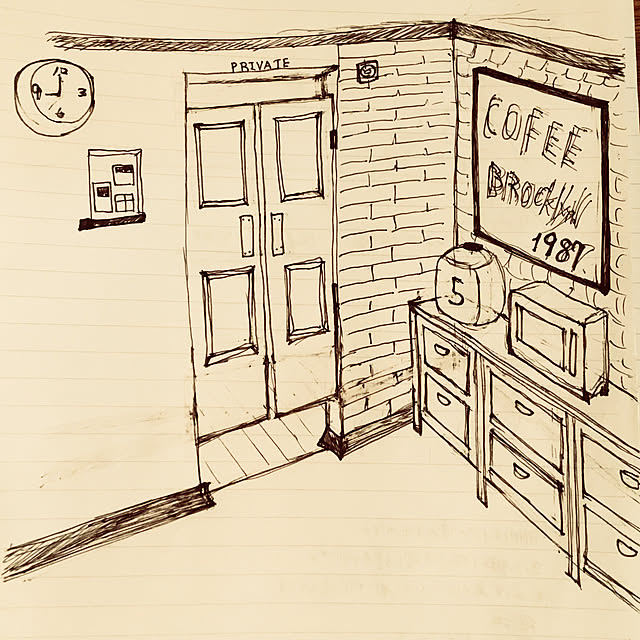 PRIVATE
12
9 3
6
COFEE
BROCKLYN
1987
5